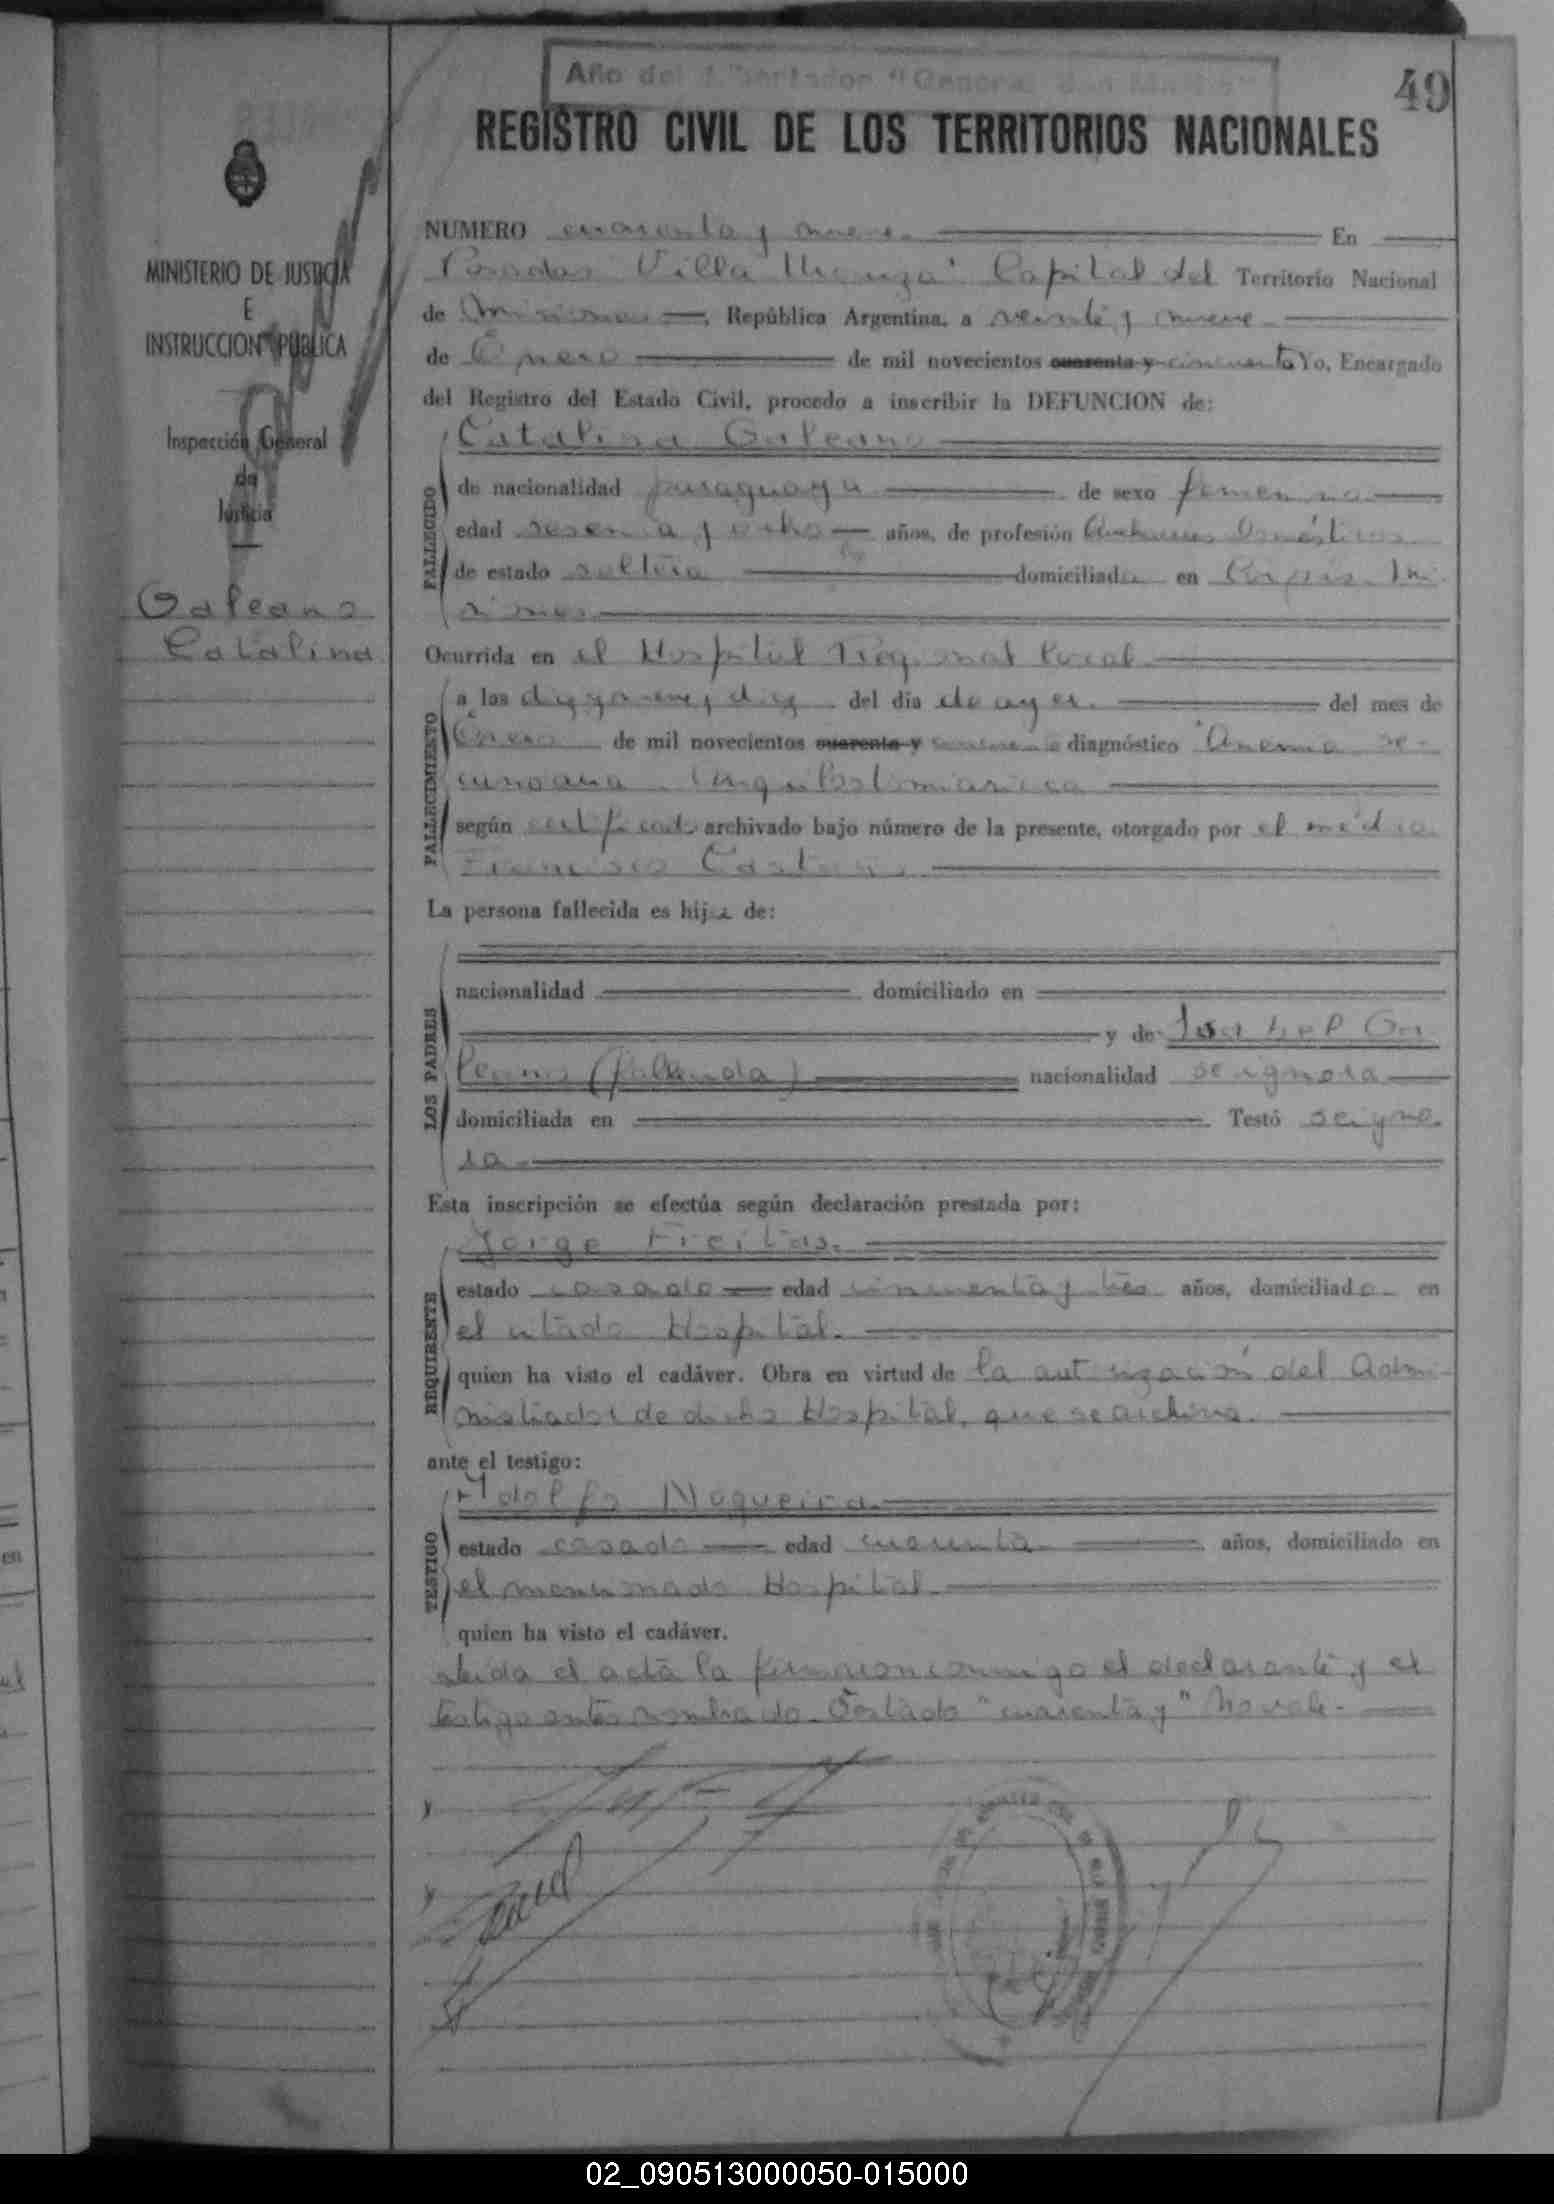 Año del Libertador "General San Martín"
49
REGISTRO CIVIL DE LOS TERRITORIOS NACIONALES
MINISTERIO DE JUSTICIA
E
INSTRUCCION PUBLICA
Inspección General
de
Justicia
Galeano
Catalina
NUMERO cuarenta y nueve En
Posadas "Villa Urquiza" Capital del Territorio Nacional
de Misiones República Argentina, a veinte y nueve
de Enero de mil novecientos cuarenta y cincuenta Yo, Encargado
del Registro del Estado Civil, procedo a inscribir la DEFUNCION de:
Catalina Galeano
FALLECIDO
de nacionalidad paraguaya de sexo femenino
edad sesenta y ocho años, de profesión Quehaceres Domésticos
de estado soltera domiciliada en Corpus Mi
siones
Ocurrida en el Hospital Regional local
FALLECIMIENTO
a las diez y nueve y diez del día de ayer. del mes de
Enero de mil novecientos cuarenta y cincuenta diagnóstico "Anemia se-
cundaria Anquilostomiasica
según certificado archivado bajo número de la presente, otorgado por el médico
Francisco
La persona fallecida es hija de:
LOS PADRES
nacionalidad domiciliado en
y de Isabel Ga
leano (fallecida) nacionalidad se ignora
domiciliada en Testó se igno
ra
Esta inscripción se efectúa según declaración prestada por:
Jorge Freitas.
REQUIRENTE
estado casado edad cincuenta y tres años, domiciliado en
el citado Hospital.
quien ha visto el cadáver. Obra en virtud de la autorización del Admi-
nistrador de dicho Hospital, que se archiva.
ante el testigo:
Adolfo Nogueira
TESTIGO
estado casado edad cuarenta años, domiciliado en
el mencionado Hospital
quien ha visto el cadáver.
Leida el acta la firmaron conmigo el declarante y el
testigo antes nombrado. Testado "cuarenta y" No vale.
02_090513000050-015000